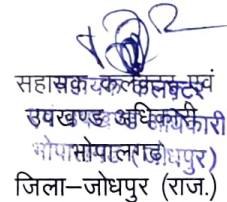 सहायक कलेक्टर एवं
उपखण्ड अधिकारी
भोपालगढ़
जिला–जोधपुर (राज.)